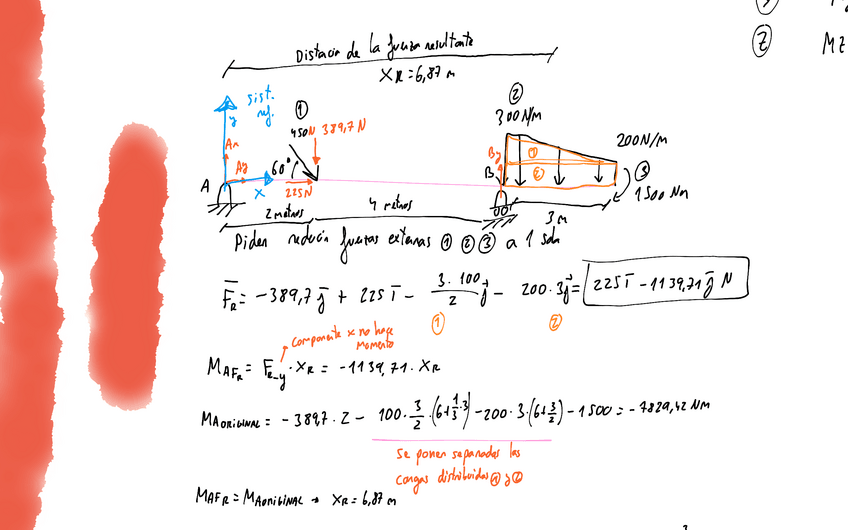 3
2 MZ
Distacia de la fuerza resultante
XR = 6,87 m
sist.
ref.
y
1
450N 389,7 N
2
300 N/m
200 N/m
By
1
Ax
Ay
60°
B
2
3
A
x
225N
1500 Nm
2 metros
4 metros
3 m
Piden reducir fuerzas externas 1 2 3 a 1 sola
F̄R = -389,7 j̄ + 225 ī - 3·100/2 j̄ - 200·3 j̄ = 225 ī - 1139,71 j̄ N
1 2
componente x no hace
momento
MAFR = FR_y · XR = -1139,71 · XR
MAORIGINAL = -389,7·2 - 100·3/2·(6+1/3·3) - 200·3·(6+3/2) - 1500 = -7829,42 Nm
Se ponen separadas las
cargas distribuidas 1 y 2
MAFR = MAORIGINAL → XR = 6,87 m